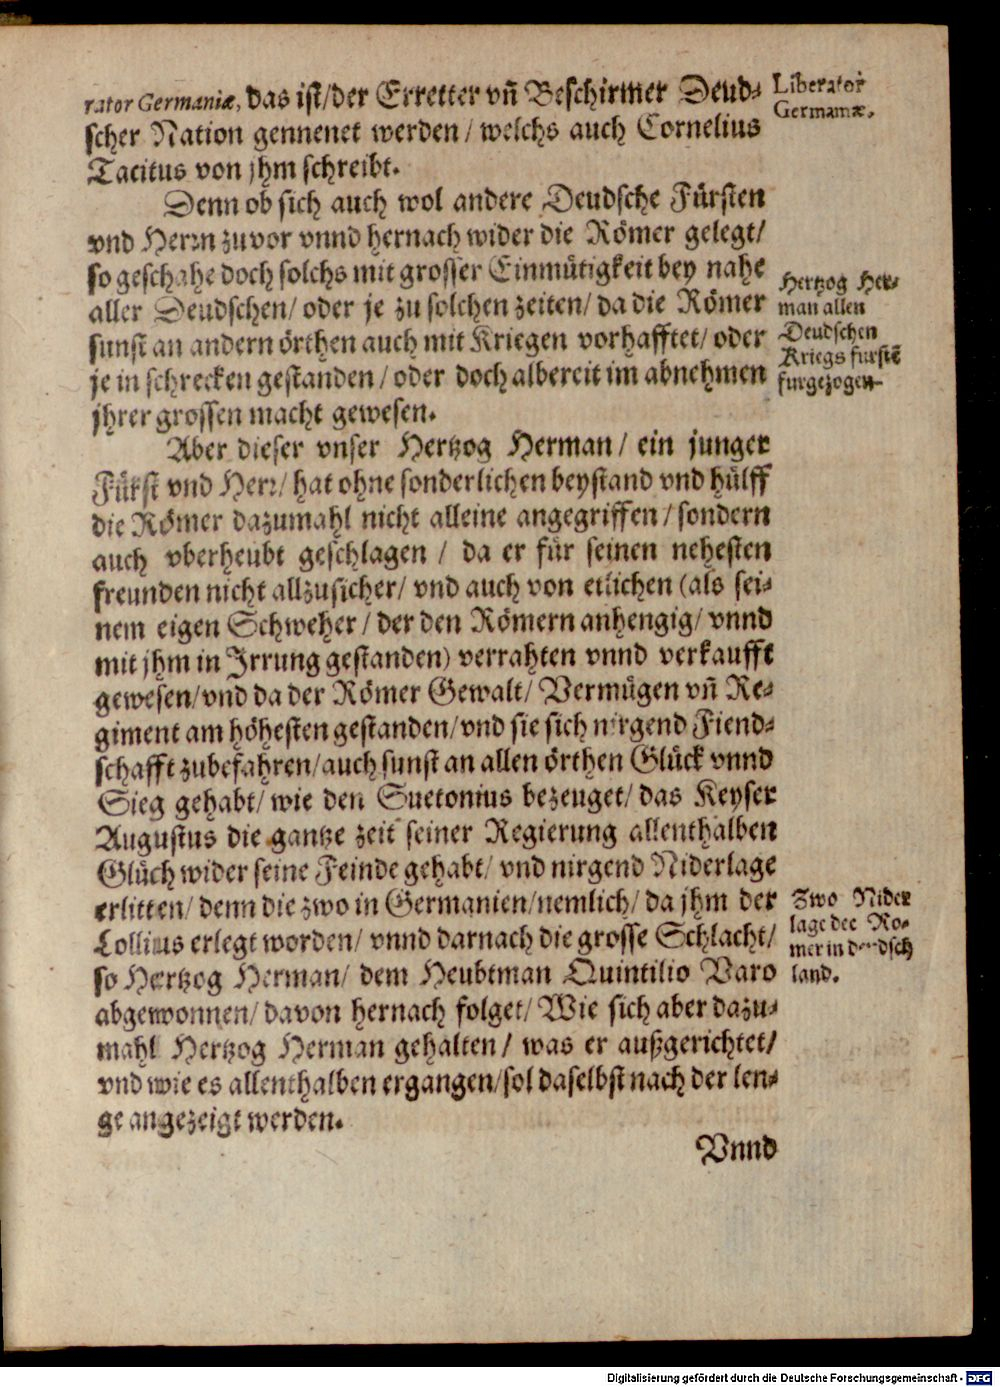 rator Germaniæ, das ist/der Erretter vñ Beschirmer Deud-
scher Nation gennenet werden/ welchs auch Cornelius
Tacitus von jhm schreibt.
Liberator
Germaniæ.
Denn ob sich auch wol andere Deudsche Fürsten
vnd Herrn zuvor vnnd hernach wider die Römer gelegt/
so geschahe doch solchs mit grosser Einmütigkeit bey nahe
aller Deudschen/ oder je zu solchen zeiten/ da die Römer
sunst an andern örthen auch mit Kriegen vorhafftet/ oder
je in schrecken gestanden/ oder doch albereit im abnehmen
jhrer grossen macht gewesen.
Hertzog Her-
man allen
Deudschen
Kriegs fürstē
fürgezogen.
Aber dieser vnser Hertzog Herman/ ein junger
Fürst vnd Herr/ hat ohne sonderlichen beystand vnd hülff
die Römer dazumahl nicht alleine angegriffen/ sondern
auch vberheubt geschlagen/ da er für seinen nehesten
freunden nicht allzusicher/ vnd auch von etlichen (als sei-
nem eigen Schweher/ der den Römern anhengig/ vnnd
mit jhm in Irrung gestanden) verrahten vnnd verkaufft
gewesen/ vnd da der Römer Gewalt/ Vermügen vñ Re-
giment am höhesten gestanden/ vnd sie sich nirgend Fiend-
schafft zubefahren/ auch sunst an allen örthen Glück vnnd
Sieg gehabt/ wie den Suetonius bezeuget/ das Keyser
Augustus die gantze zeit seiner Regierung allenthalben
Glüch wider seine Feinde gehabt/ vnd nirgend Niderlage
erlitten/ denn die zwo in Germanien/ nemlich/ da jhm der
Lollius erlegt worden/ vnnd darnach die grosse Schlacht/
so Hertzog Herman/ dem Heubtman Quintilio Varo
abgewonnen/ davon hernach folget/ Wie sich aber dazu-
mahl Hertzog Herman gehalten/ was er außgerichtet/
vnd wie es allenthalben ergangen/ sol daselbst nach der len-
ge angezeigt werden.
Zwo Nider
lage der Rö-
mer in deudsch
land.
Vnnd
Digitalisierung gefördert durch die Deutsche Forschungsgemeinschaft - DFG